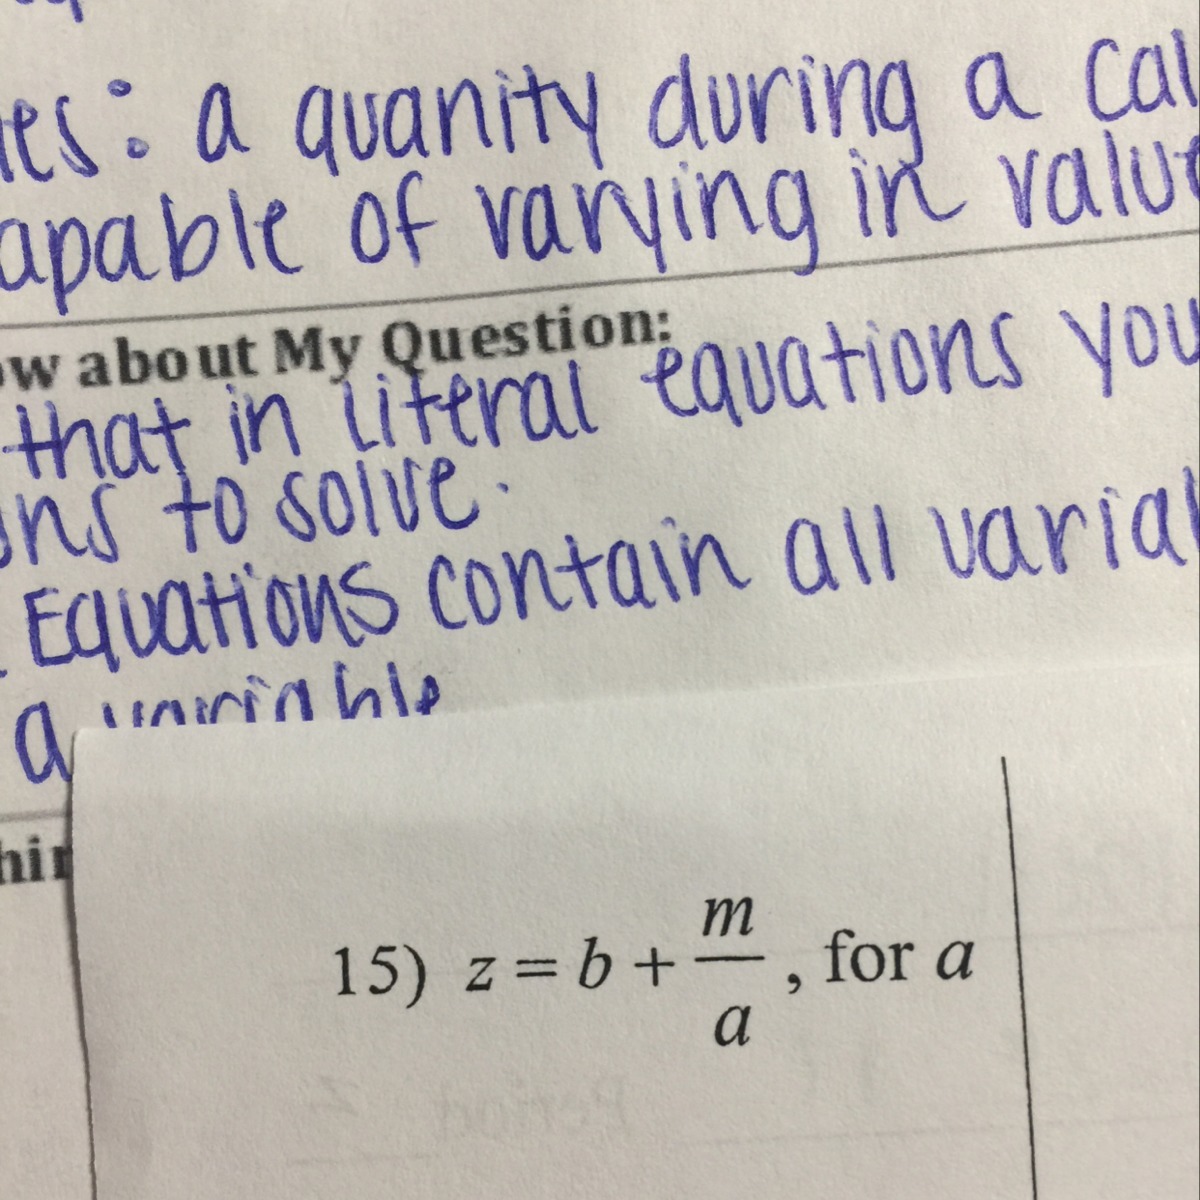 es: a quanity during a cal
apable of varying in value
ow about My Question:
that in literal equations you
ons to solve.
Equations contain all varial
a variable
hin
15) z = b + m/a , for a